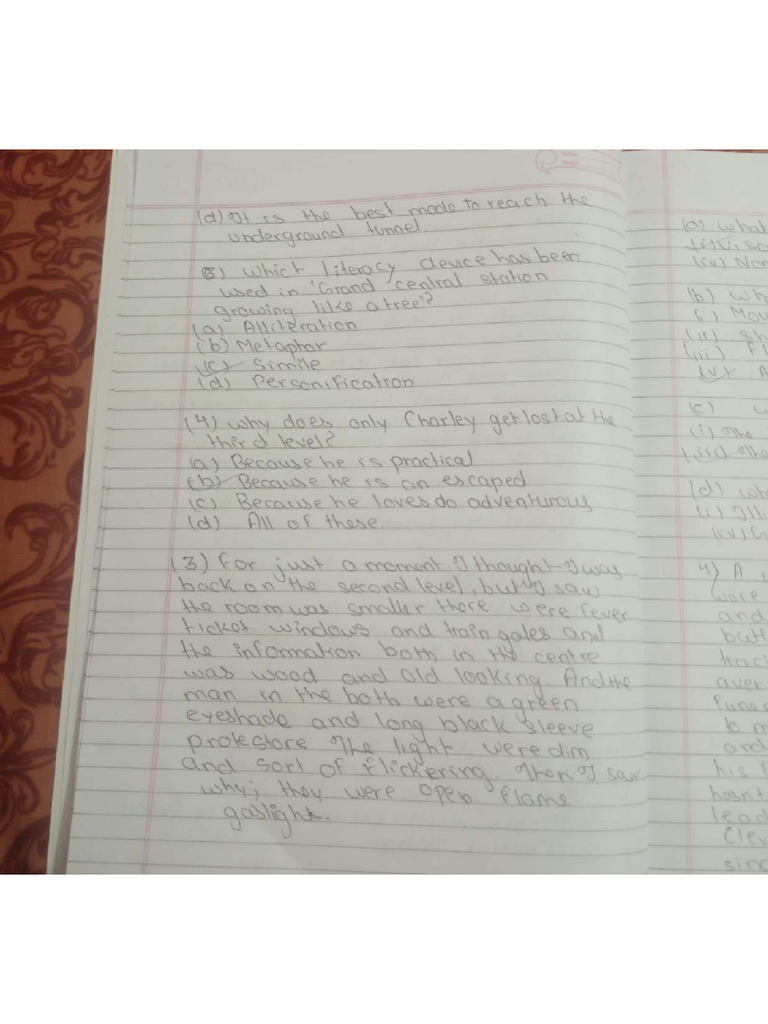 (d) It is the best mode to reach the
underground tunnel
3) which literacy device has been
used in 'Grand central station
growing like a tree'?
(a) Alliteration
(b) Metaphor
(c) Simile
(d) Personification
(4) why does only Charley get lost at the
third level?
(a) Because he is practical
(b) Because he is an escaped
(c) Because he loves do adventurous
(d) All of these.
(3) for just a moment I thought I was
back on the second level, but I saw
the room was smaller there were fever
ticket windows and train gates and
the information both in the centre
was wood and old looking. And the
man in the both were a green
eyeshade and long black sleeve
protestore The light were dim
and sort of flickering. Then I saw
why; they were open flame
gaslight.
(a) what
(b) wh
(i) Mou
(ii) Sh
(iii) Fl
(v) A
c) w
(i) The
(iii) The
(d) wh
(i) Illi
4) A
were
and
but
trac
aver
funer
b m
and
his f
hasn't
lead
Clev
sinc